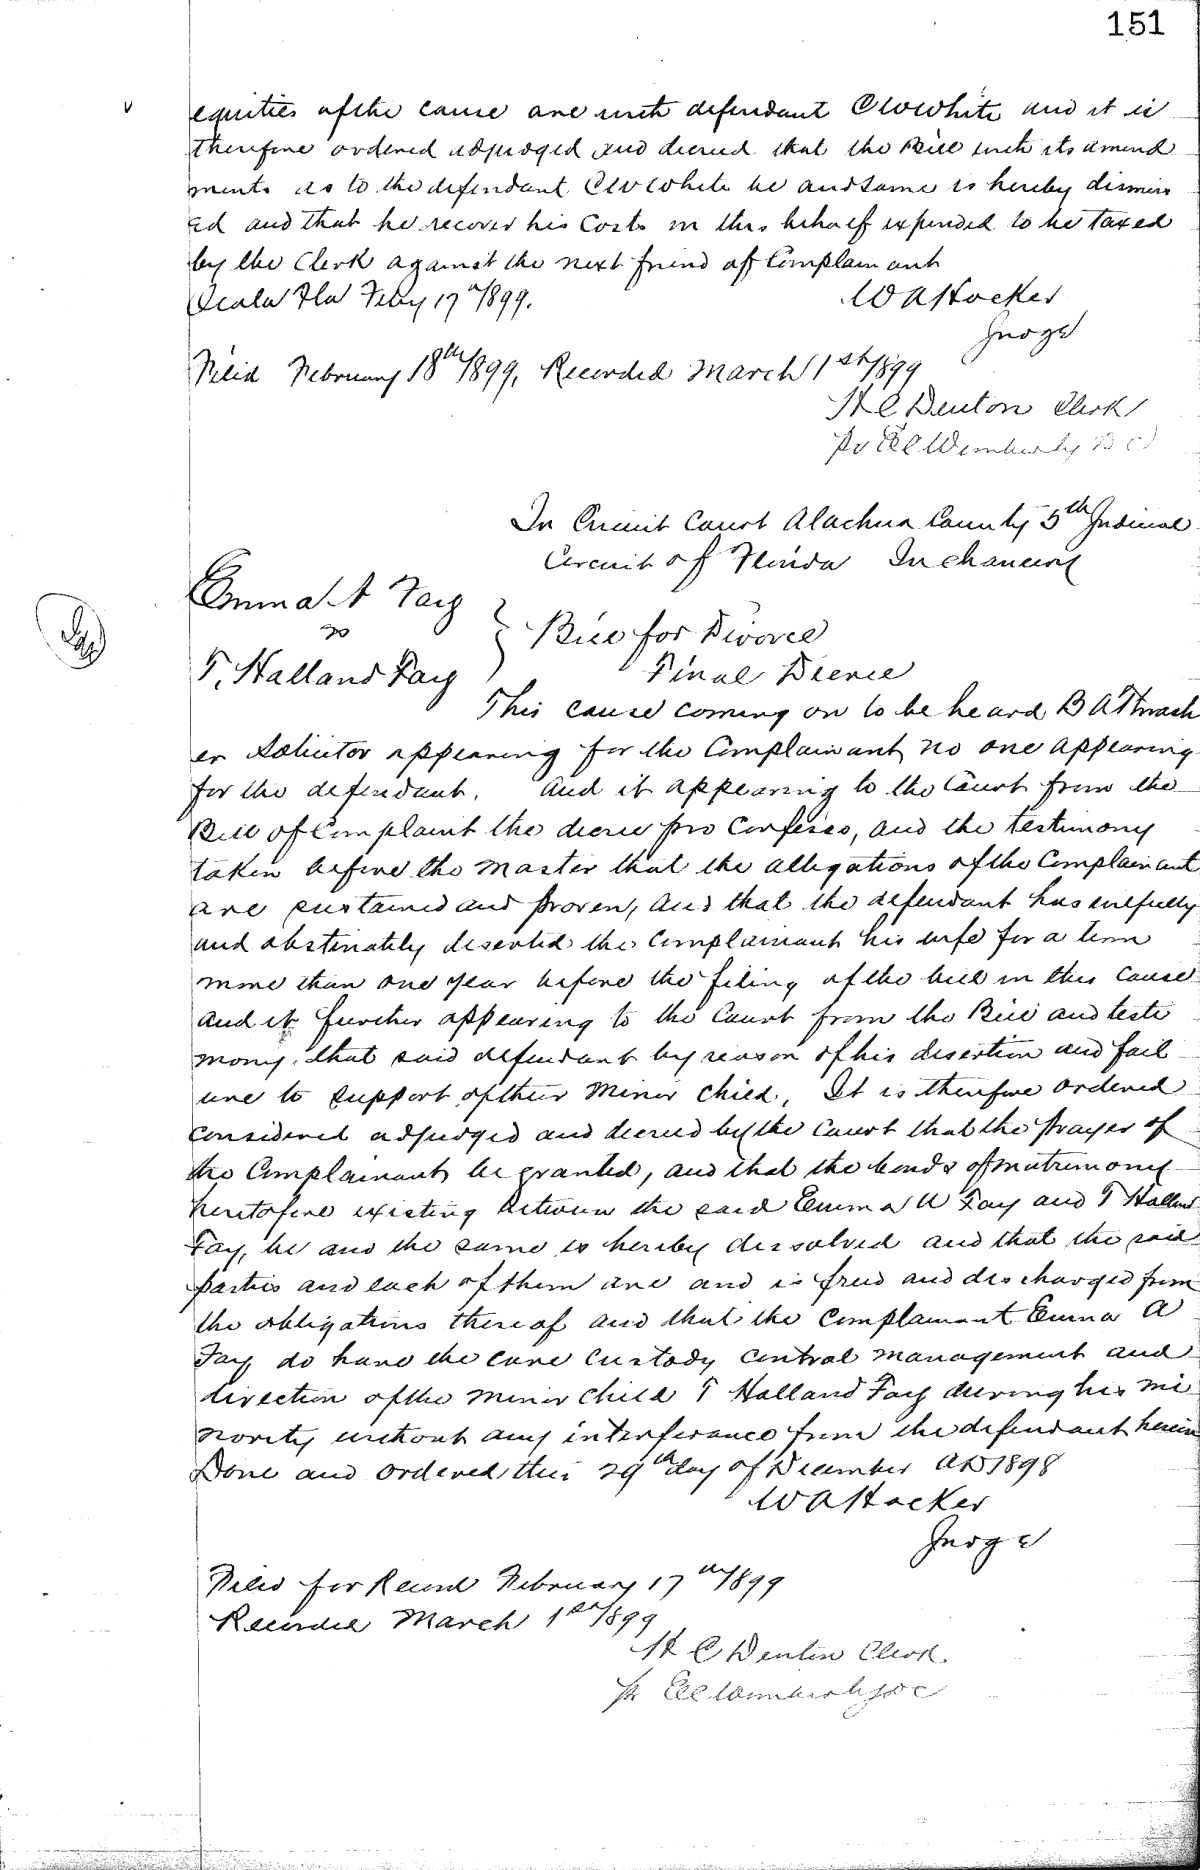 151
equities of the cause are with defendant C W White and it is
therefore ordered adjudged and decreed that the Bill with its amend
ments as to the defendant C W White be and same is hereby dismiss
ed and that he recover his Costs in this behalf expended to be taxed
by the Clerk against the next friend of Complainant
Ocala Fla Feby 17th/1899.
W A Hocker
Judge
Filed February 18th/1899, Recorded March 1st/1899
H C Denton Clerk
Pr E C Wimberly D C
In Circuit Court Alachua County 5th Judicial
Circuit of Florida In chancery
Emma A Fay
vs
T. Halland Fay
Bill for Divorce
Final Decree
This cause coming on to be heard B A Thrash
er Solicitor appearing for the Complainant, no one appearing
for the defendant. And it appearing to the Court from the
Bill of Complaint the decree pro Confesso, and the testimony
taken before the Master that the allegations of the Complainant
are sustained and proven, and that the defendant has wilfully
and obstinately deserted the Complainant his wife for a term
more than one year before the filing of the bill in this cause
And it further appearing to the Court from the Bill and testi
mony, that said defendant by reason of his desertion and fail
ure to support of their Minor child, It is therefore ordered
considered adjudged and decreed by the Court that the prayer of
the Complainant be granted, and that the bonds of matrimony
heretofore existing between the said Emma A Fay and T Halland
Fay, be and the same is hereby dissolved and that the said
parties and each of them are and is freed and discharged from
the obligations thereof and that the Complainant Emma A
Fay do have the care custody control management and
direction of the Minor child T Halland Fay during his mi
nority without any interferance from the defendant herein
Done and ordered this 29th day of December AD 1898
W A Hocker
Judge
Filed for Record February 17th/1899
Recorded March 1st/1899
H C Denton Clerk.
Pr E C Wimberly D C